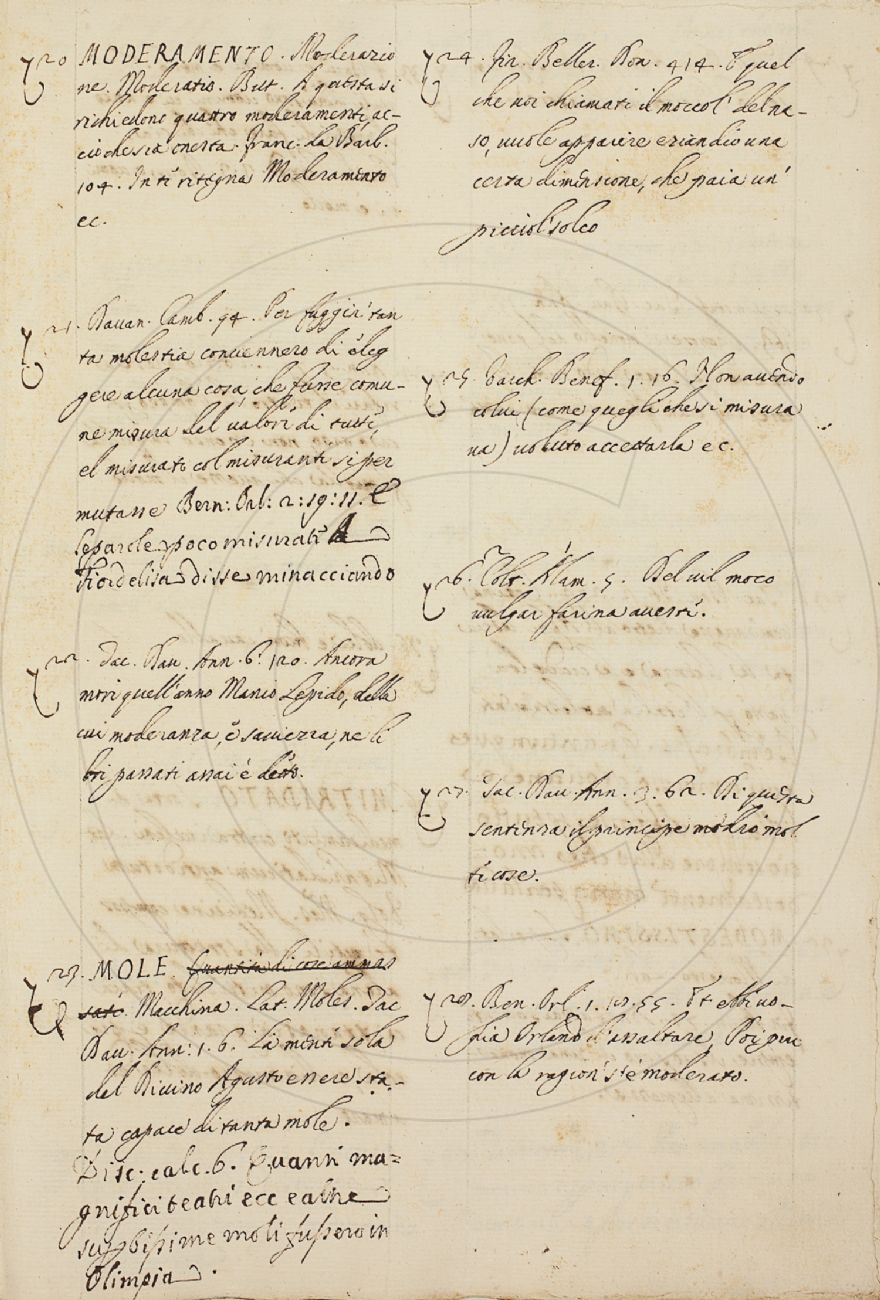 20 MODERAMENTO. Moderazio
ne. Moderatio. But. A questa si
richiedono quattro moderamenti, ac-
ciò che sia onesta. Franc. da Barb.
104. In ti ritegna Moderamento
ec.
21. Dauan. Camb. 94. Per fuggir tan
ta molestia conuennero di eleg
gere alcuna cosa, che fusse comu-
ne misura del ualor di tutti,
el misurato col misuranti si per
mutasse Bern: Orl: 2: 19: 11. E
le parole poco misurati A
Fiordelisa disse minacciando
22. Tac. Dau. Ann. 6. 120. Ancora
morì quell'anno Manio Lepido, della
cui moderanza, e sauiezza, ne li
bri passati assai è detto.
23. MOLE. Quantità di cose ammas
sate. Macchina. Lat. Moles. Tac
Dau. Ann: 1. 6. La menti sola
del Diuino Agusto essere sta-
ta capace di tanta mole.
Disc: calc. 6. Quanti ma-
gnifici teatri ecc e altre
superbissime moli fussero in
Olimpia.
24. Fir. Bellez. Don. 414. E quel
che noi chiamati il moccol' del na-
so, uuole appaiere eziandio una
certa dimensione, che paia un'
picciol' solco
25. Varch. Benef. 1. 16. Non auendo
colui (come quegli che si misura
ua) uoluto accettarla ec.
26. Colt. Alam. 5. Del uil moco
uulgar farina auesti.
27. Tac. Dau. Ann. 3. 62. Di questa
sentenza il principe moderò mol
ti cose.
28. Ben. Orl. 1. 18. 55. Et ebbi uo-
glia Orlando d'assaltare, Poi pur
con la ragion s'è moderato.